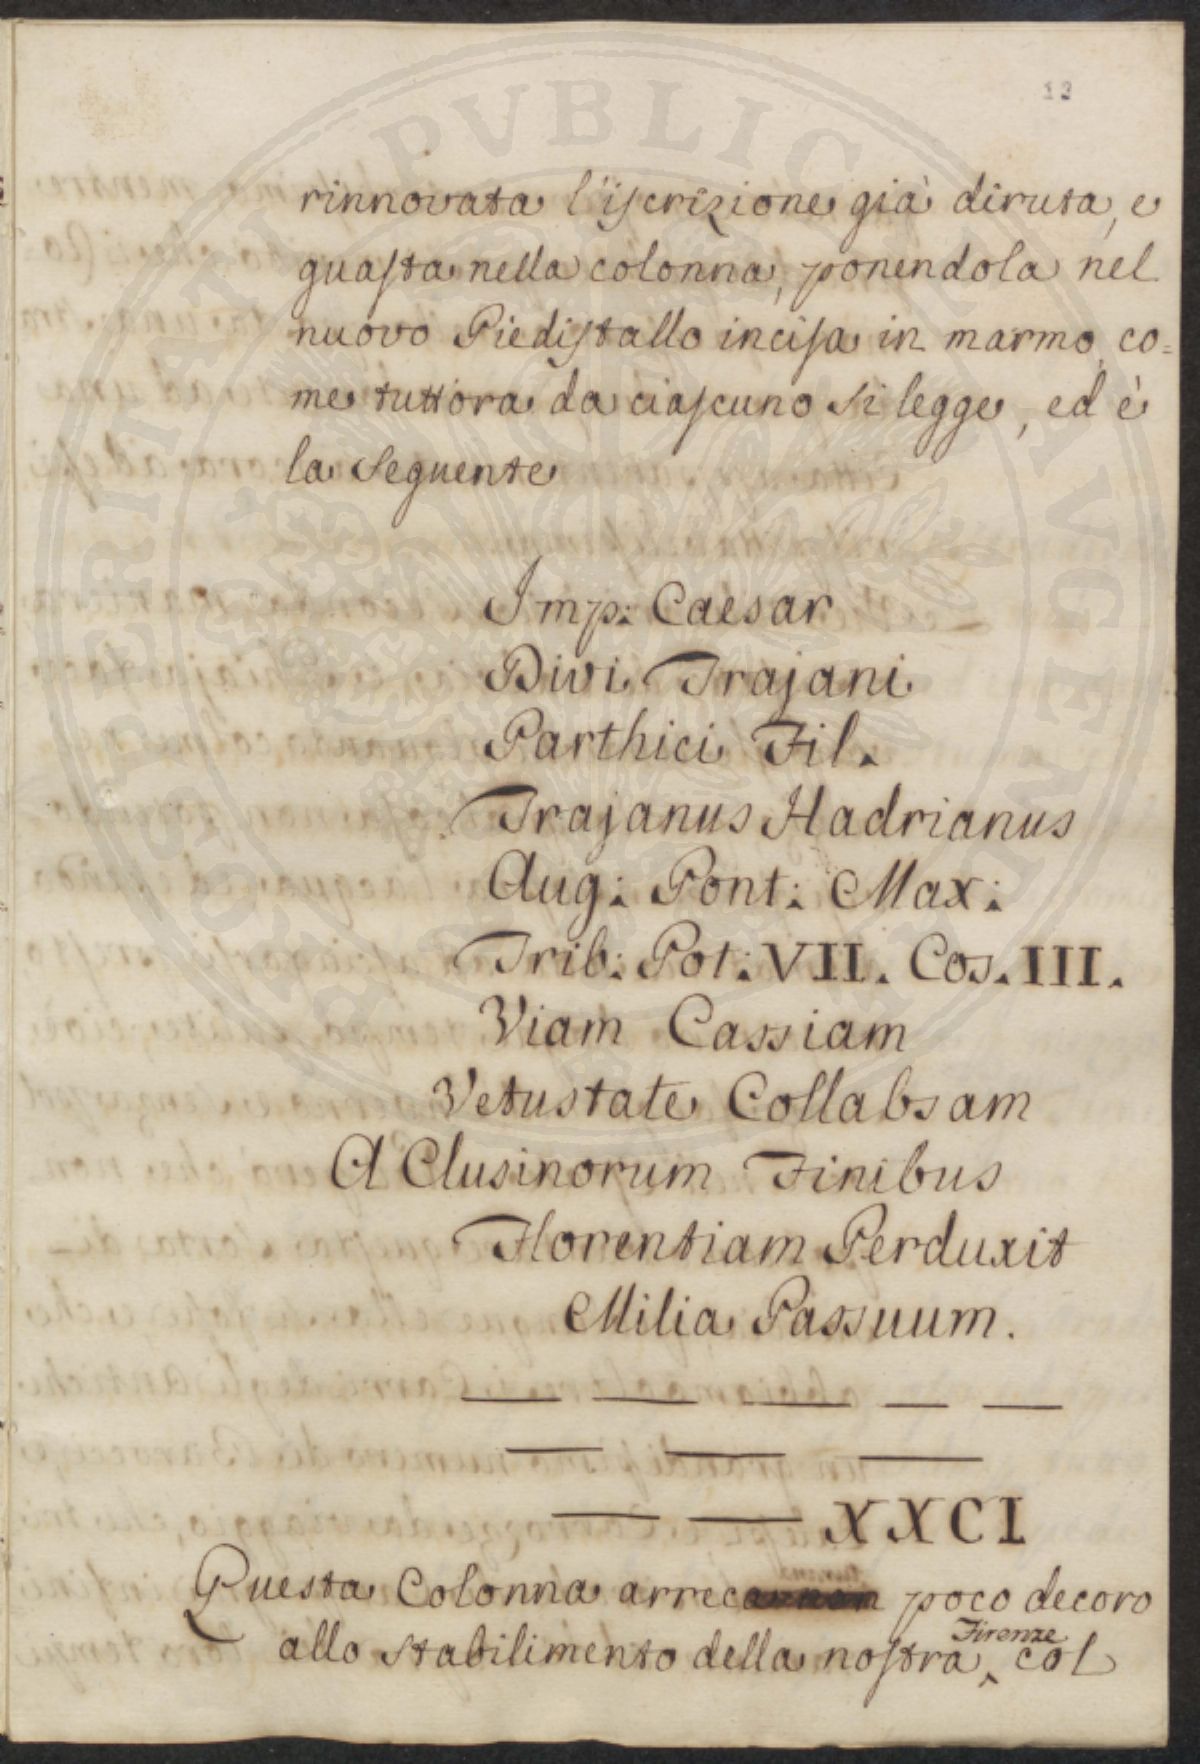 12
rinnovata l'iscrizione già diruta, e
guasta nella colonna, ponendola nel
nuovo Piedistallo incisa in marmo, co=
me tuttora da ciascuno si legge, ed è
la Seguente
Imp: Caesar
Divi Trajani
Parthici Fil.
Trajanus Hadrianus
Aug: Pont: Max:
Trib: Pot: VII. Cos. III.
Viam Cassiam
Vetustate Collabsam
A Clusinorum Finibus
Florentiam Perduxit
Milia Passuum.
— — — — —
— — —
— — XXCI
Questa Colonna arreca poco decoro
allo Stabilimento della nostra Firenze col